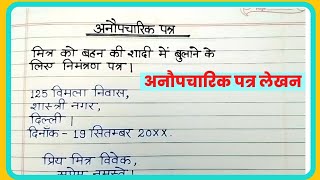 अनौपचारिक पत्र
मित्र को बहन की शादी में बुलाने के
लिए निमंत्रण पत्र।
अनौपचारिक पत्र लेखन
125 विमला निवास,
शास्त्री नगर,
दिल्ली।
दिनाँक - 19 सितम्बर 20××.
प्रिय मित्र विवेक,
सप्रेम नमस्ते।